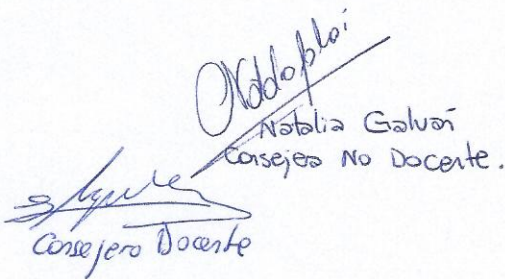 Natalia Galván
Consejera No Docente.
Consejero Docente